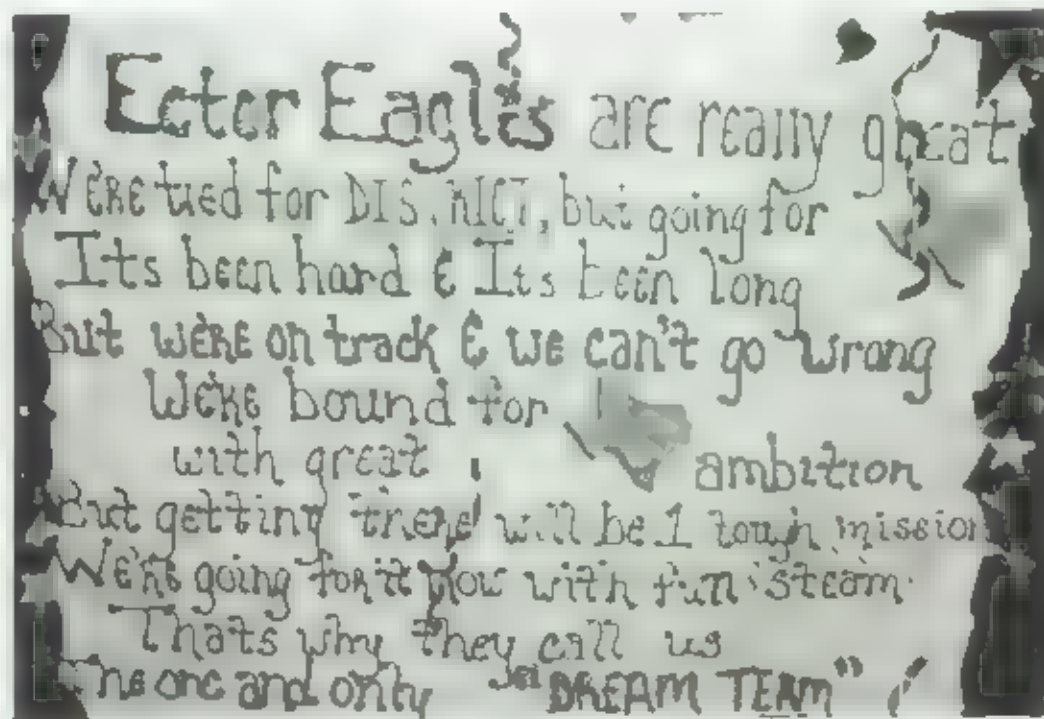 Ector Eagles are really great
We're tied for DISTRICT, but going for
Its been hard & Its been long
But we're on track & we can't go wrong
We're bound for
with great ambition
But getting there will be 1 tough mission
We're going for it now with full steam
Thats why they call us
The one and only "DREAM TEAM"